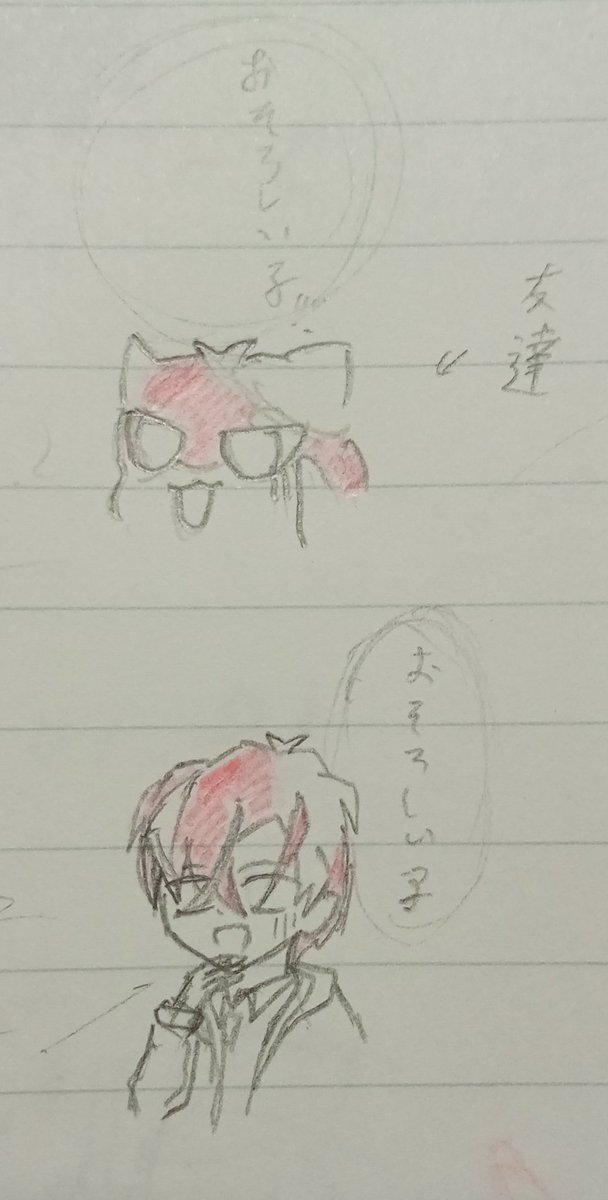 おそろしい子…!!
友達
おそろしい子